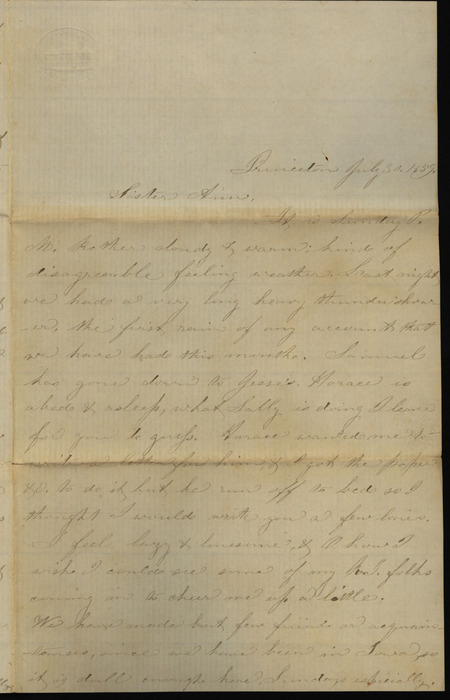 Princeton July 30. 1857.
Sister Ann.
It is Sunday P.
M. Rather cloudy & warm: kind of
disagreeable feeling weather. Last night
we had a very long heavy thundershow
er, the first rain of any account that
we have had this month. Samuel
has gone down to Jesse's. Horace is
abed & asleep, what Sally is doing I leave
for you to guess. Horace wanted me to
write a letter for him, & I got the paper
&c. to do it, but he run off to bed so I
thought I would write you a few lines.
I feel lazy & lonesome, & I
wish I could see some of my folks
coming in to cheer me up a little.
We have made but few friends or acquain
tances, since we have been in Iowa, so
it is dull enough here, Sundays especially.